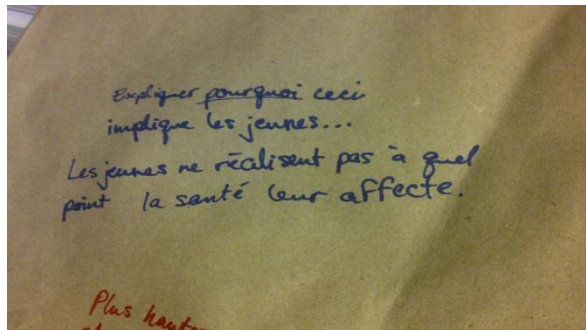 Expliquer pourquoi ceci
implique les jeunes...
Les jeunes ne réalisent pas à quel
point la santé leur affecte.
Plus haute